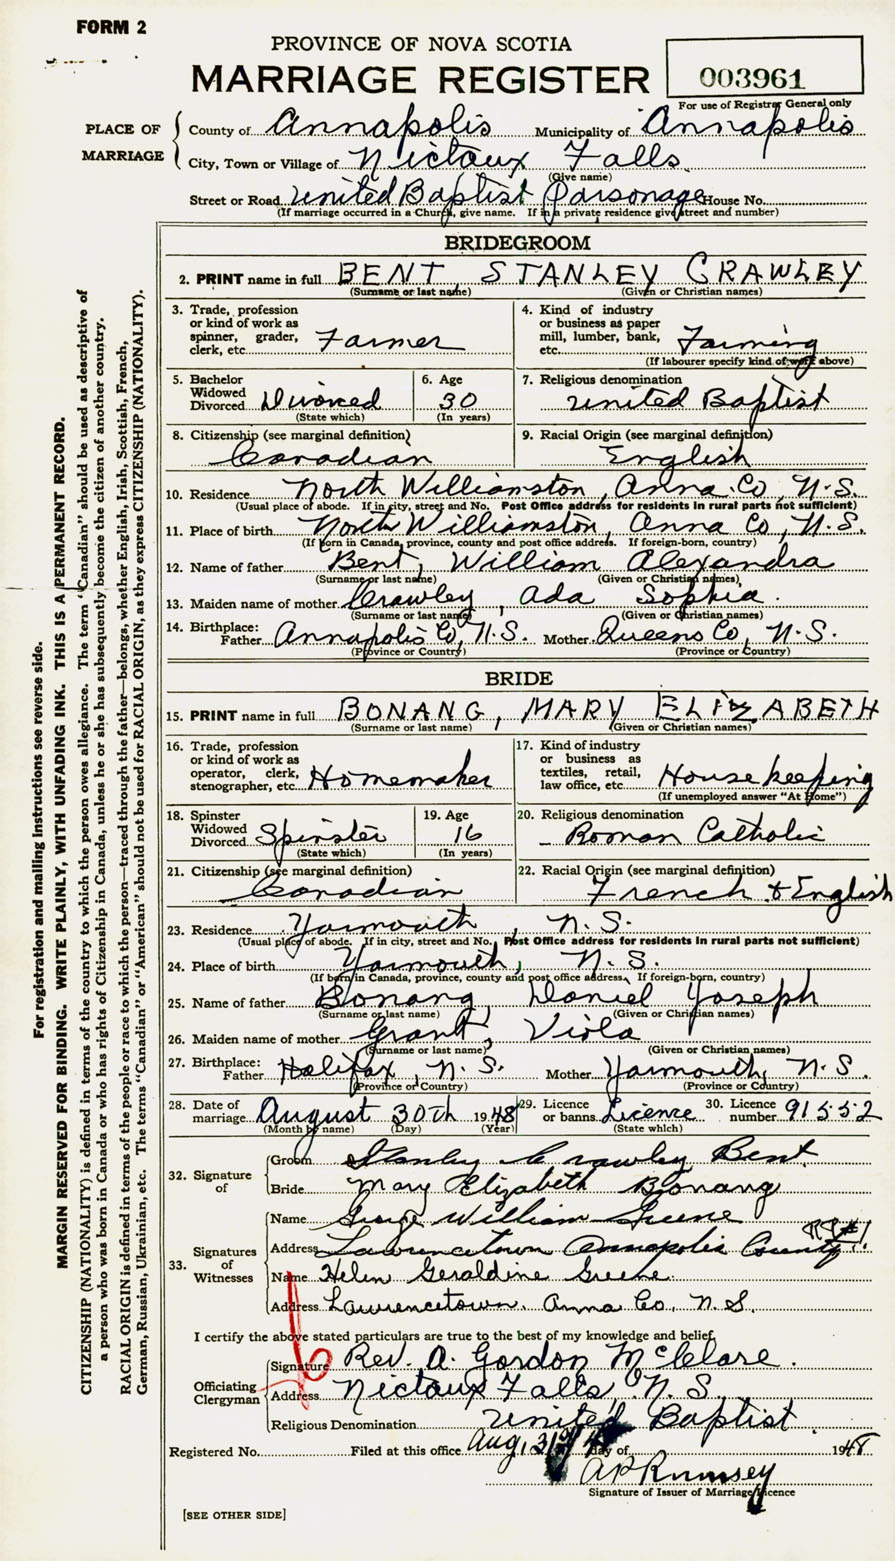 FORM 2
PROVINCE OF NOVA SCOTIA
MARRIAGE REGISTER
003961
For use of Registrar General only
PLACE OF MARRIAGE
County of Annapolis Municipality of Annapolis
City, Town or Village of Nictaux Falls
(Give name)
Street or Road United Baptist Parsonage House No.
(If marriage occurred in a Church, give name. If in a private residence give street and number)
BRIDEGROOM
2. PRINT name in full BENT STANLEY CRAWLEY
(Surname or last name) (Given or Christian names)
3. Trade, profession or kind of work as spinner, grader, clerk, etc. Farmer
4. Kind of industry or business as paper mill, lumber, bank, etc. Farming
(If labourer specify kind of work above)
5. Bachelor Widowed Divorced Divorced
(State which)
6. Age 30
(In years)
7. Religious denomination
United Baptist
8. Citizenship (see marginal definition)
Canadian
9. Racial Origin (see marginal definition)
English
10. Residence North Williamston, Anna Co, N.S.
(Usual place of abode. If in city, street and No. Post Office address for residents in rural parts not sufficient)
11. Place of birth North Williamston, Anna Co, N.S.
(If born in Canada, province, county and post office address. If foreign-born, country)
12. Name of father Bent, William Alexandra
(Surname or last name) (Given or Christian names)
13. Maiden name of mother Crawley, Ada Sophia.
(Surname or last name) (Given or Christian names)
14. Birthplace:
Father Annapolis Co, N.S. Mother Queens Co, N.S.
(Province or Country) (Province or Country)
BRIDE
15. PRINT name in full BONANG, MARY ELIZABETH
(Surname or last name) (Given or Christian names)
16. Trade, profession or kind of work as operator, clerk, stenographer, etc. Homemaker
17. Kind of industry or business as textiles, retail, law office, etc. Housekeeping
(If unemployed answer "At Home")
18. Spinster Widowed Divorced Spinster
(State which)
19. Age
16
(In years)
20. Religious denomination
Roman Catholic
21. Citizenship (see marginal definition)
Canadian
22. Racial Origin (see marginal definition)
French & English
23. Residence Yarmouth, N.S.
(Usual place of abode. If in city, street and No. Post Office address for residents in rural parts not sufficient)
24. Place of birth Yarmouth, N.S.
(If born in Canada, province, county and post office address. If foreign-born, country)
25. Name of father Bonang, Daniel Yoseph
(Surname or last name) (Given or Christian names)
26. Maiden name of mother Grant, Viola
(Surname or last name) (Given or Christian names)
27. Birthplace:
Father Halifax, N.S. Mother Yarmouth, N.S.
(Province or Country) (Province or Country)
28. Date of marriage August 30th 1948
(Month by name) (Day) (Year)
29. Licence or banns Licence
(State which)
30. Licence number 91552
32. Signature of
Groom Stanley Crawley Bent
Bride Mary Elizabeth Bonang
33. Signatures of Witnesses
Name George William Greene
Address Lawrencetown Annapolis County RR#1.
Name Helen Geraldine Greene.
Address Lawrencetown. Anna Co, N.S.
I certify the above stated particulars are true to the best of my knowledge and belief.
Officiating Clergyman
Signature Rev. A. Gordon McClare.
Address Nictaux Falls, N.S.
Religious Denomination United Baptist
Registered No. Filed at this office Aug, 31 day of 1948
A P Rumsey
Signature of Issuer of Marriage Licence
[SEE OTHER SIDE]
For registration and mailing instructions see reverse side.
MARGIN RESERVED FOR BINDING. WRITE PLAINLY, WITH UNFADING INK. THIS IS A PERMANENT RECORD.
CITIZENSHIP (NATIONALITY) is defined in terms of the country to which the person owes allegiance. The term "Canadian" should be used as descriptive of
a person who was born in Canada or who has rights of Citizenship in Canada, unless he or she has subsequently become the citizen of another country.
RACIAL ORIGIN is defined in terms of the people or race to which the person—traced through the father—belongs, whether English, Irish, Scottish, French,
German, Russian, Ukrainian, etc. The terms "Canadian" or "American" should not be used for RACIAL ORIGIN, as they express CITIZENSHIP (NATIONALITY).